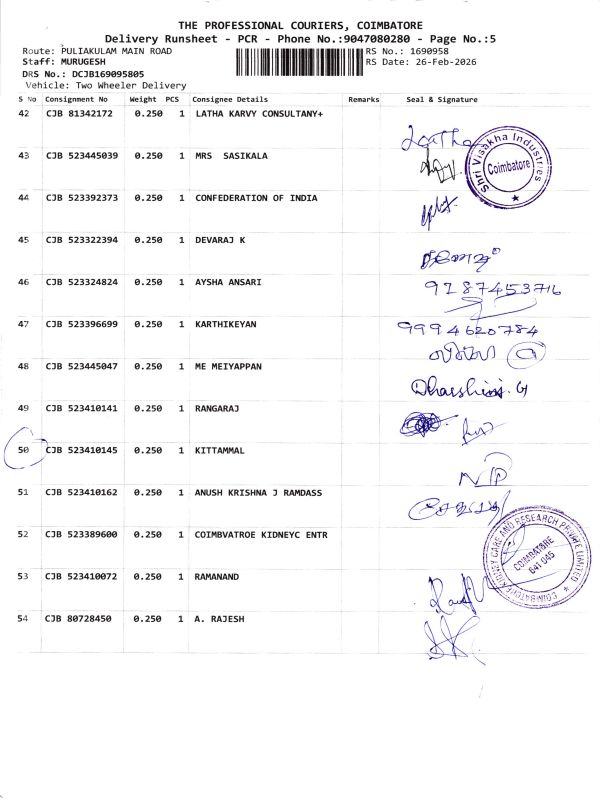 THE PROFESSIONAL COURIERS, COIMBATORE
Delivery Runsheet - PCR - Phone No.:9047080280 - Page No.:5
Route: PULIAKULAM MAIN ROAD
RS No.: 1690958
Staff: MURUGESH
RS Date: 26-Feb-2026
DRS No.: DCJB169095805
Vehicle: Two Wheeler Delivery
S No Consignment No Weight PCS Consignee Details Remarks Seal & Signature
42 CJB 81342172 0.250 1 LATHA KARVY CONSULTANY+
Latha
43 CJB 523445039 0.250 1 MRS SASIKALA
Shri Visakha Industries
Coimbatore
44 CJB 523392373 0.250 1 CONFEDERATION OF INDIA
45 CJB 523322394 0.250 1 DEVARAJ K
46 CJB 523324824 0.250 1 AYSHA ANSARI
9287453716
47 CJB 523396699 0.250 1 KARTHIKEYAN
9994620784
48 CJB 523445047 0.250 1 ME MEIYAPPAN
Dharshini. G
49 CJB 523410141 0.250 1 RANGARAJ
50 CJB 523410145 0.250 1 KITTAMMAL
51 CJB 523410162 0.250 1 ANUSH KRISHNA J RAMDASS
52 CJB 523389600 0.250 1 COIMBVATROE KIDNEYC ENTR
COIMBATORE KIDNEY CARE AND RESEARCH PRIVATE LIMITED
COIMBATORE
641 045
53 CJB 523410072 0.250 1 RAMANAND
54 CJB 80728450 0.250 1 A. RAJESH